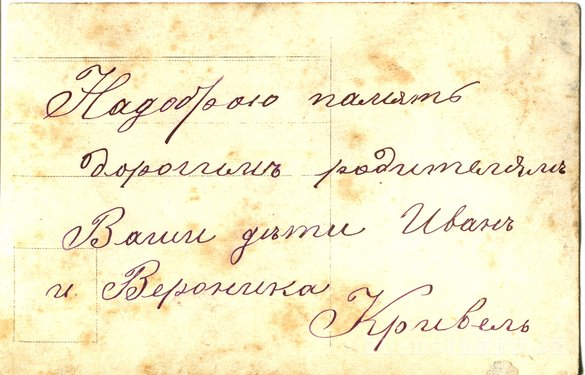 Надоброю память
дорогимъ родителямъ
Ваши дѣти Иванъ
и Вероника
Кривель